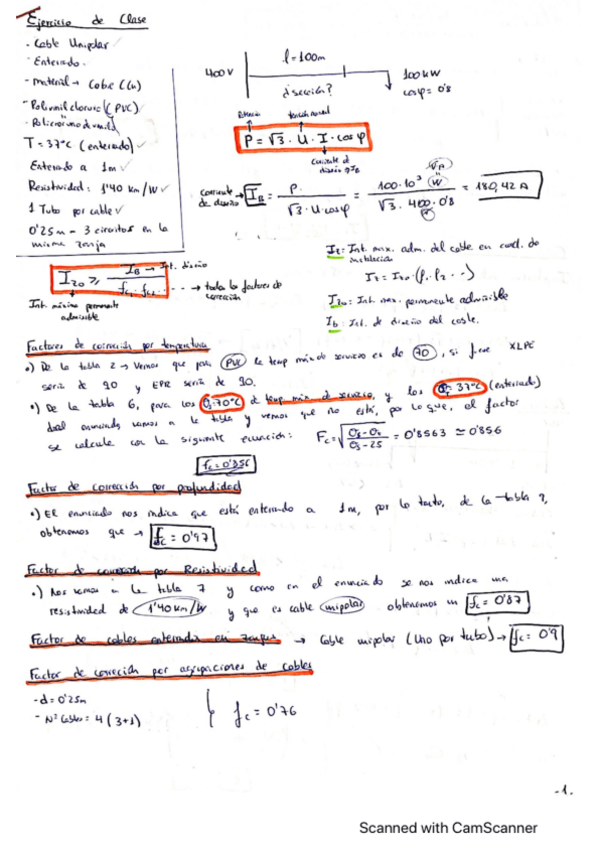 Ejercicio de Clase
- Cable Unipolar ✓
- Enterrado. ✓
- Material → Cobre (Cu)
- Polivinil cloruro (PVC) ✓
T = 37°C (enterrado) ✓
Enterrado a 1m ✓
Resistividad: 1'40 Km/W ✓
1 Tubo por cable ✓
0'25m - 3 circuitos en la
misma zanja
400V
l = 100m
¿sección?
100kW
cosφ = 0'8
Potencia
tensión nominal
P = √3 · U · I · cosφ
Corriente de diseño → IB
corriente de diseño
IB = P / √3 · U cosφ = 100·10³ (W) / √3 · 400 · 0'8 = 180,42 A
I20 ≥ IB → Int. diseño / fc1 · fc2 ····· → todos los factores de corrección
Int. máxima permanente admisible
Iz: Int. max. adm. del cable en cond. de
instalación
Iz = Iz0 · (f1 · f2 · ·)
Iz0: Int. max. permanente admisible
Ib: Int. de diseño del cable.
Factores de corrección por temperatura
•) De la tabla 2 → Vemos que para PVC la temp máx de servicio es de 70, si fuese XLPE
sería de 90 y EPR sería de 90.
•) De la tabla 6, para los θs 70°C de temp máx de servicio, y los θt 37°C (enterrado)
del enunciado vamos a la tabla y vemos que no está, por lo que, el factor
se calcula con la siguiente ecuación: Fc = √ θs-θt / θs-25 = 0'8563 ≃ 0'856
fc = 0'856
Factor de corrección por profundidad
•) El enunciado nos indica que está enterrado a 1m, por lo tanto, de la tabla 9,
obtenemos que → fc = 0'97
Factor de corrección por Resistividad
•) Nos vamos a la tabla 7 y como en el enunciado se nos indica una
resistividad de 1'40 Km/W y que es cable unipolar obtenemos un fc = 0'87
Factor de cables enterrados en zanjas → Cable unipolar (Uno por tubo) → fc = 0'9
Factor de corrección por agrupaciones de cables
- d = 0'25m
- Nº Cables = 4 (3+1)
fc = 0'76
-1.
Scanned with CamScanner